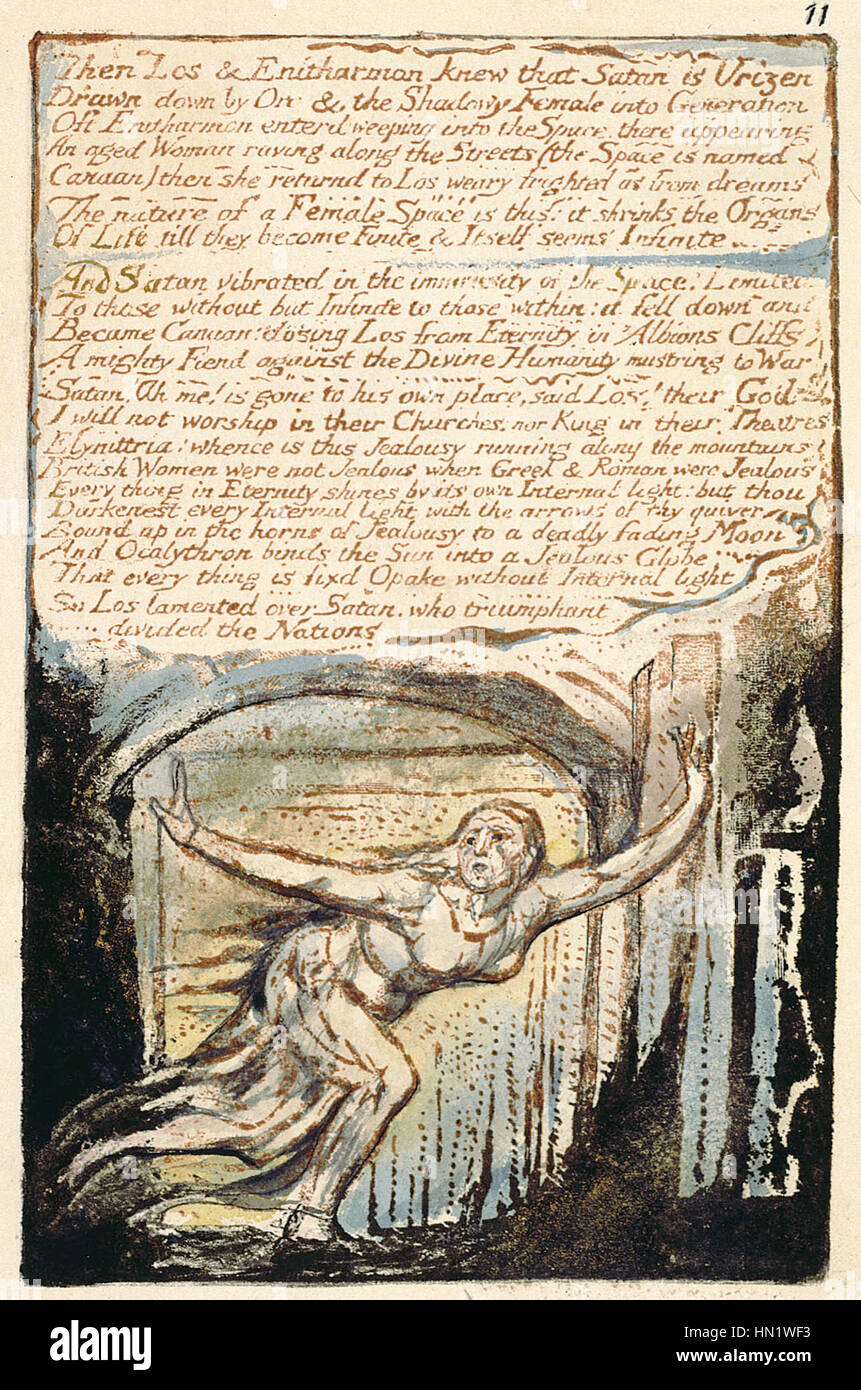 11
Then Los & Enitharmon knew that Satan is Urizen
Drawn down by Orc & the Shadowy Female into Generation
Oft Enitharmon enterd weeping into the Space, there appearing
An aged Woman raving along the Streets (the Space is named
Canaan) then she returnd to Los weary frighted as from dreams
The nature of a Female Space is this: it shrinks the Organs
Of Life till they become Finite & Itself seems Infinite
And Satan vibrated in the immensity of the Space! Limited
To those without but Infinite to those within: it fell down and
Became Canaan: closing Los from Eternity in Albions Cliffs
A mighty Fiend against the Divine Humanity mustring to War
Satan! Ah me! is gone to his own place, said Los! their God
I will not worship in their Churches, nor King in their Theatres
Elynittria! whence is this Jealousy running along the mountains
British Women were not Jealous when Greek & Roman were Jealous
Every thing in Eternity shines by its own Internal light: but thou
Darkenest every Internal light with the arrows of thy quiver
Bound up in the horns of Jealousy to a deadly fading Moon
And Ocalythron binds the Sun into a Jealous Globe
That every thing is fixd Opake without Internal light
So Los lamented over Satan, who triumphant
divided the Nations
alamy
alamy stock photo
HN1WF3
www.alamy.com